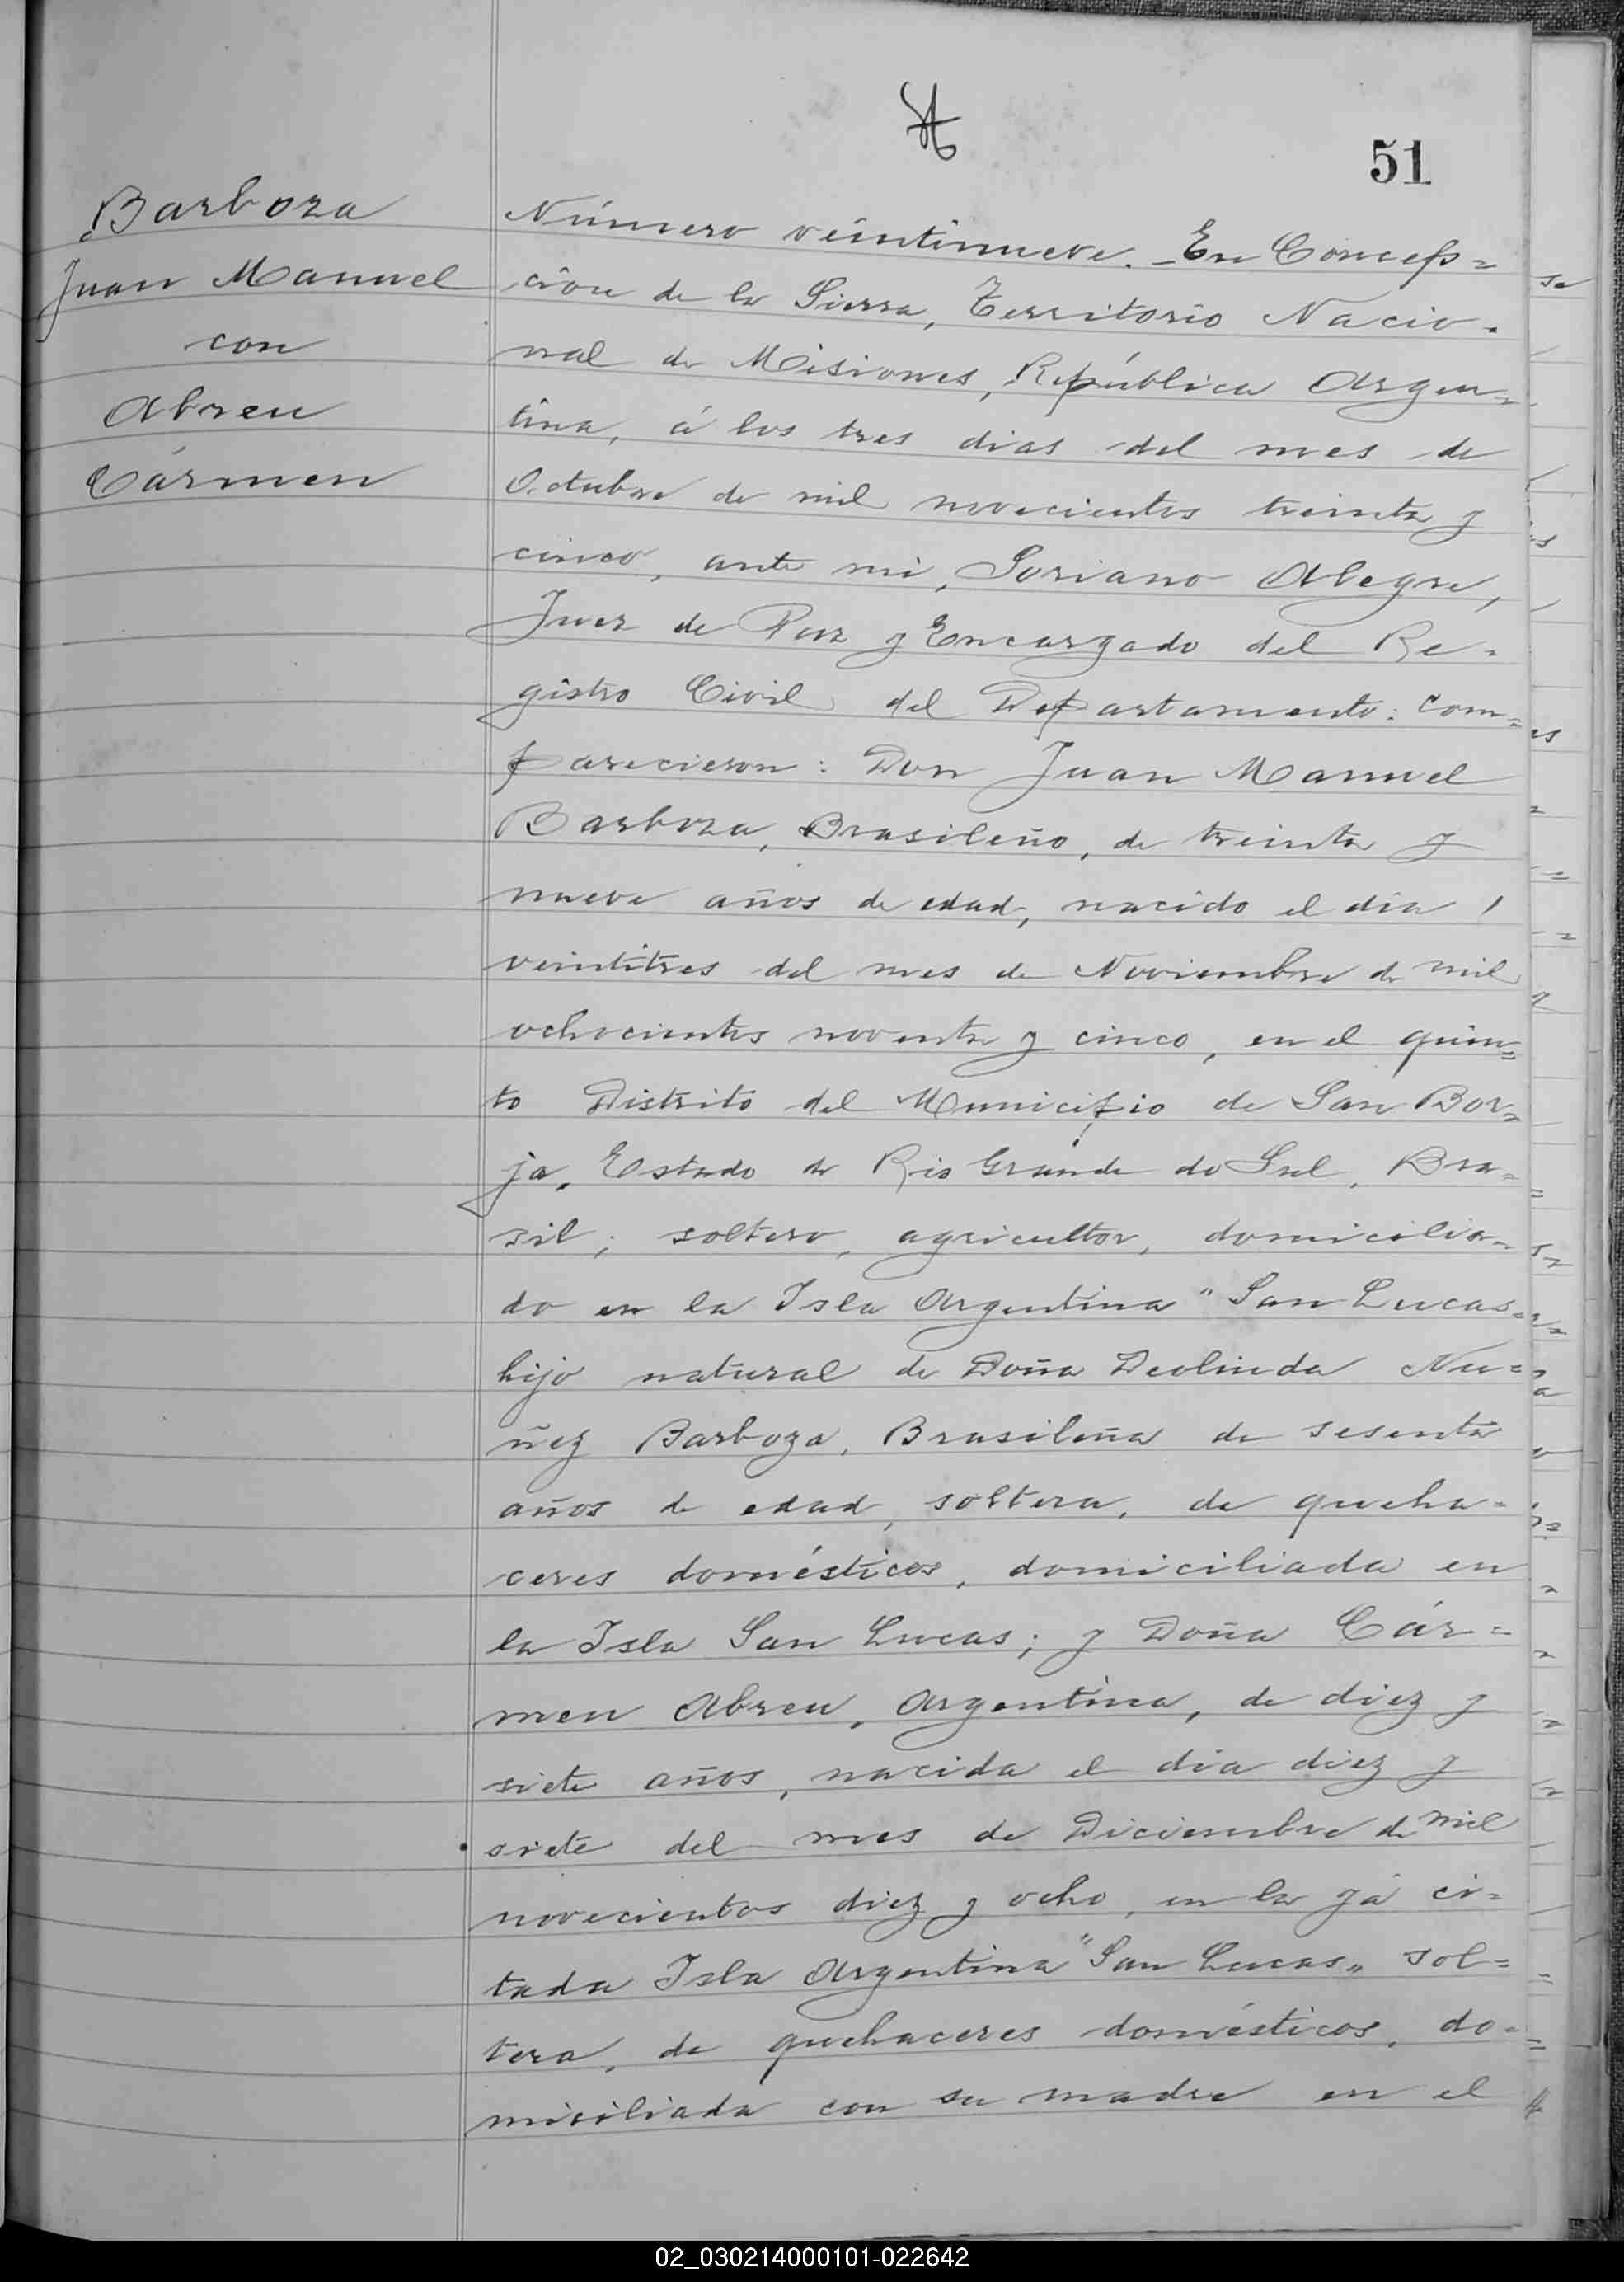 51
Barboza
Juan Manuel
con
Abreu
Cármen
Número veintinueve. - En Concep=
ción de la Sierra, Territorio Nacio-
nal de Misiones, República Argen=
tina, á los tres dias del mes de
Octubre de mil novecientos treinta y
cinco, ante mi, Soriano Alegre,
Juez de Paz y Encargado del Re-
gistro Civil del Departamento: com=
parecieron: Don Juan Manuel
Barboza, Brasileño, de treinta y
nueve años de edad, nacido el día
veintitres del mes de Noviembre de mil
ochocientos noventa y cinco, en el quin=
to Distrito del Municipio de San Bor=
ja, Estado de Rio Grande do Sul, Bra-
sil; soltero, agricultor, domicilia-
do en la Isla Argentina "San Lucas"
hijo natural de Doña Deolinda Nu=
ñez Barboza, Brasileña de sesenta
años de edad, soltera, de queha-
ceres domésticos, domiciliada en
la Isla San Lucas; y Doña Cár=
men Abreu, Argentina, de diez y
siete años, nacida el día diez y
siete del mes de Diciembre de mil
novecientos diez y ocho, en la yá ci=
tada Isla Argentina "San Lucas„ sol=
tera, de quehaceres domésticos, do-
miciliada con su madre en el
02_030214000101-022642